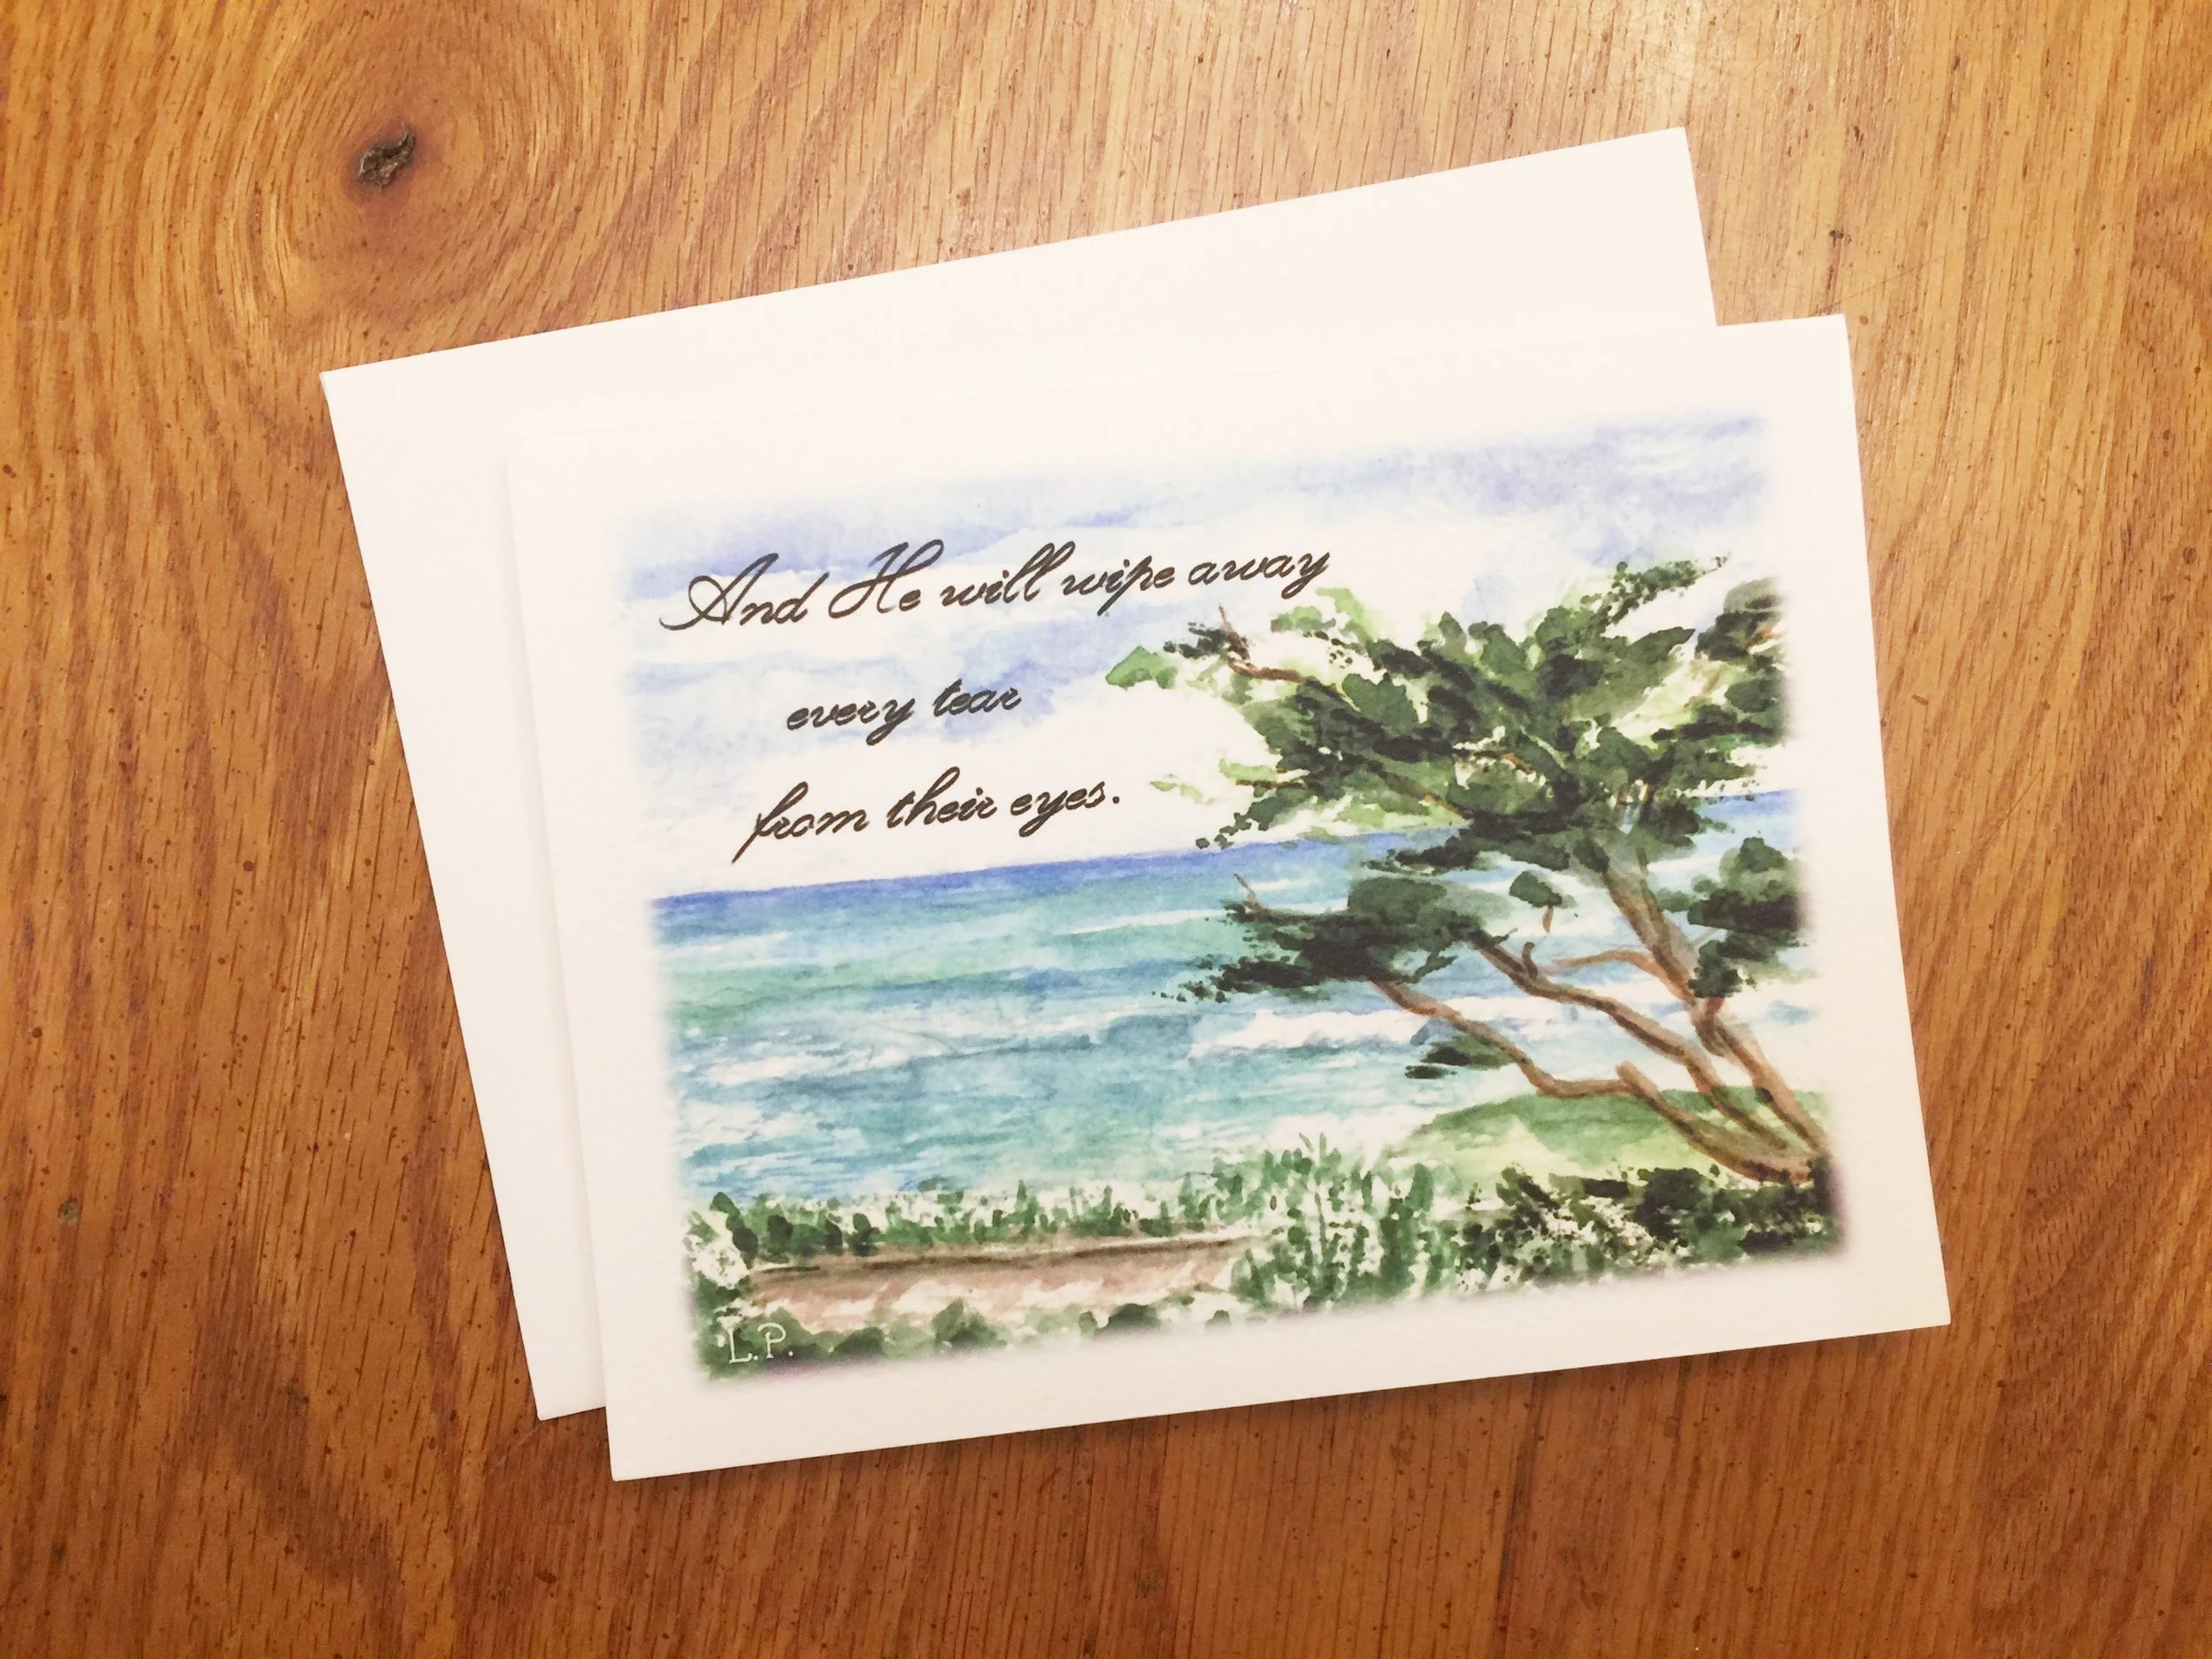 And He will wipe away
every tear
from their eyes.
L.P.